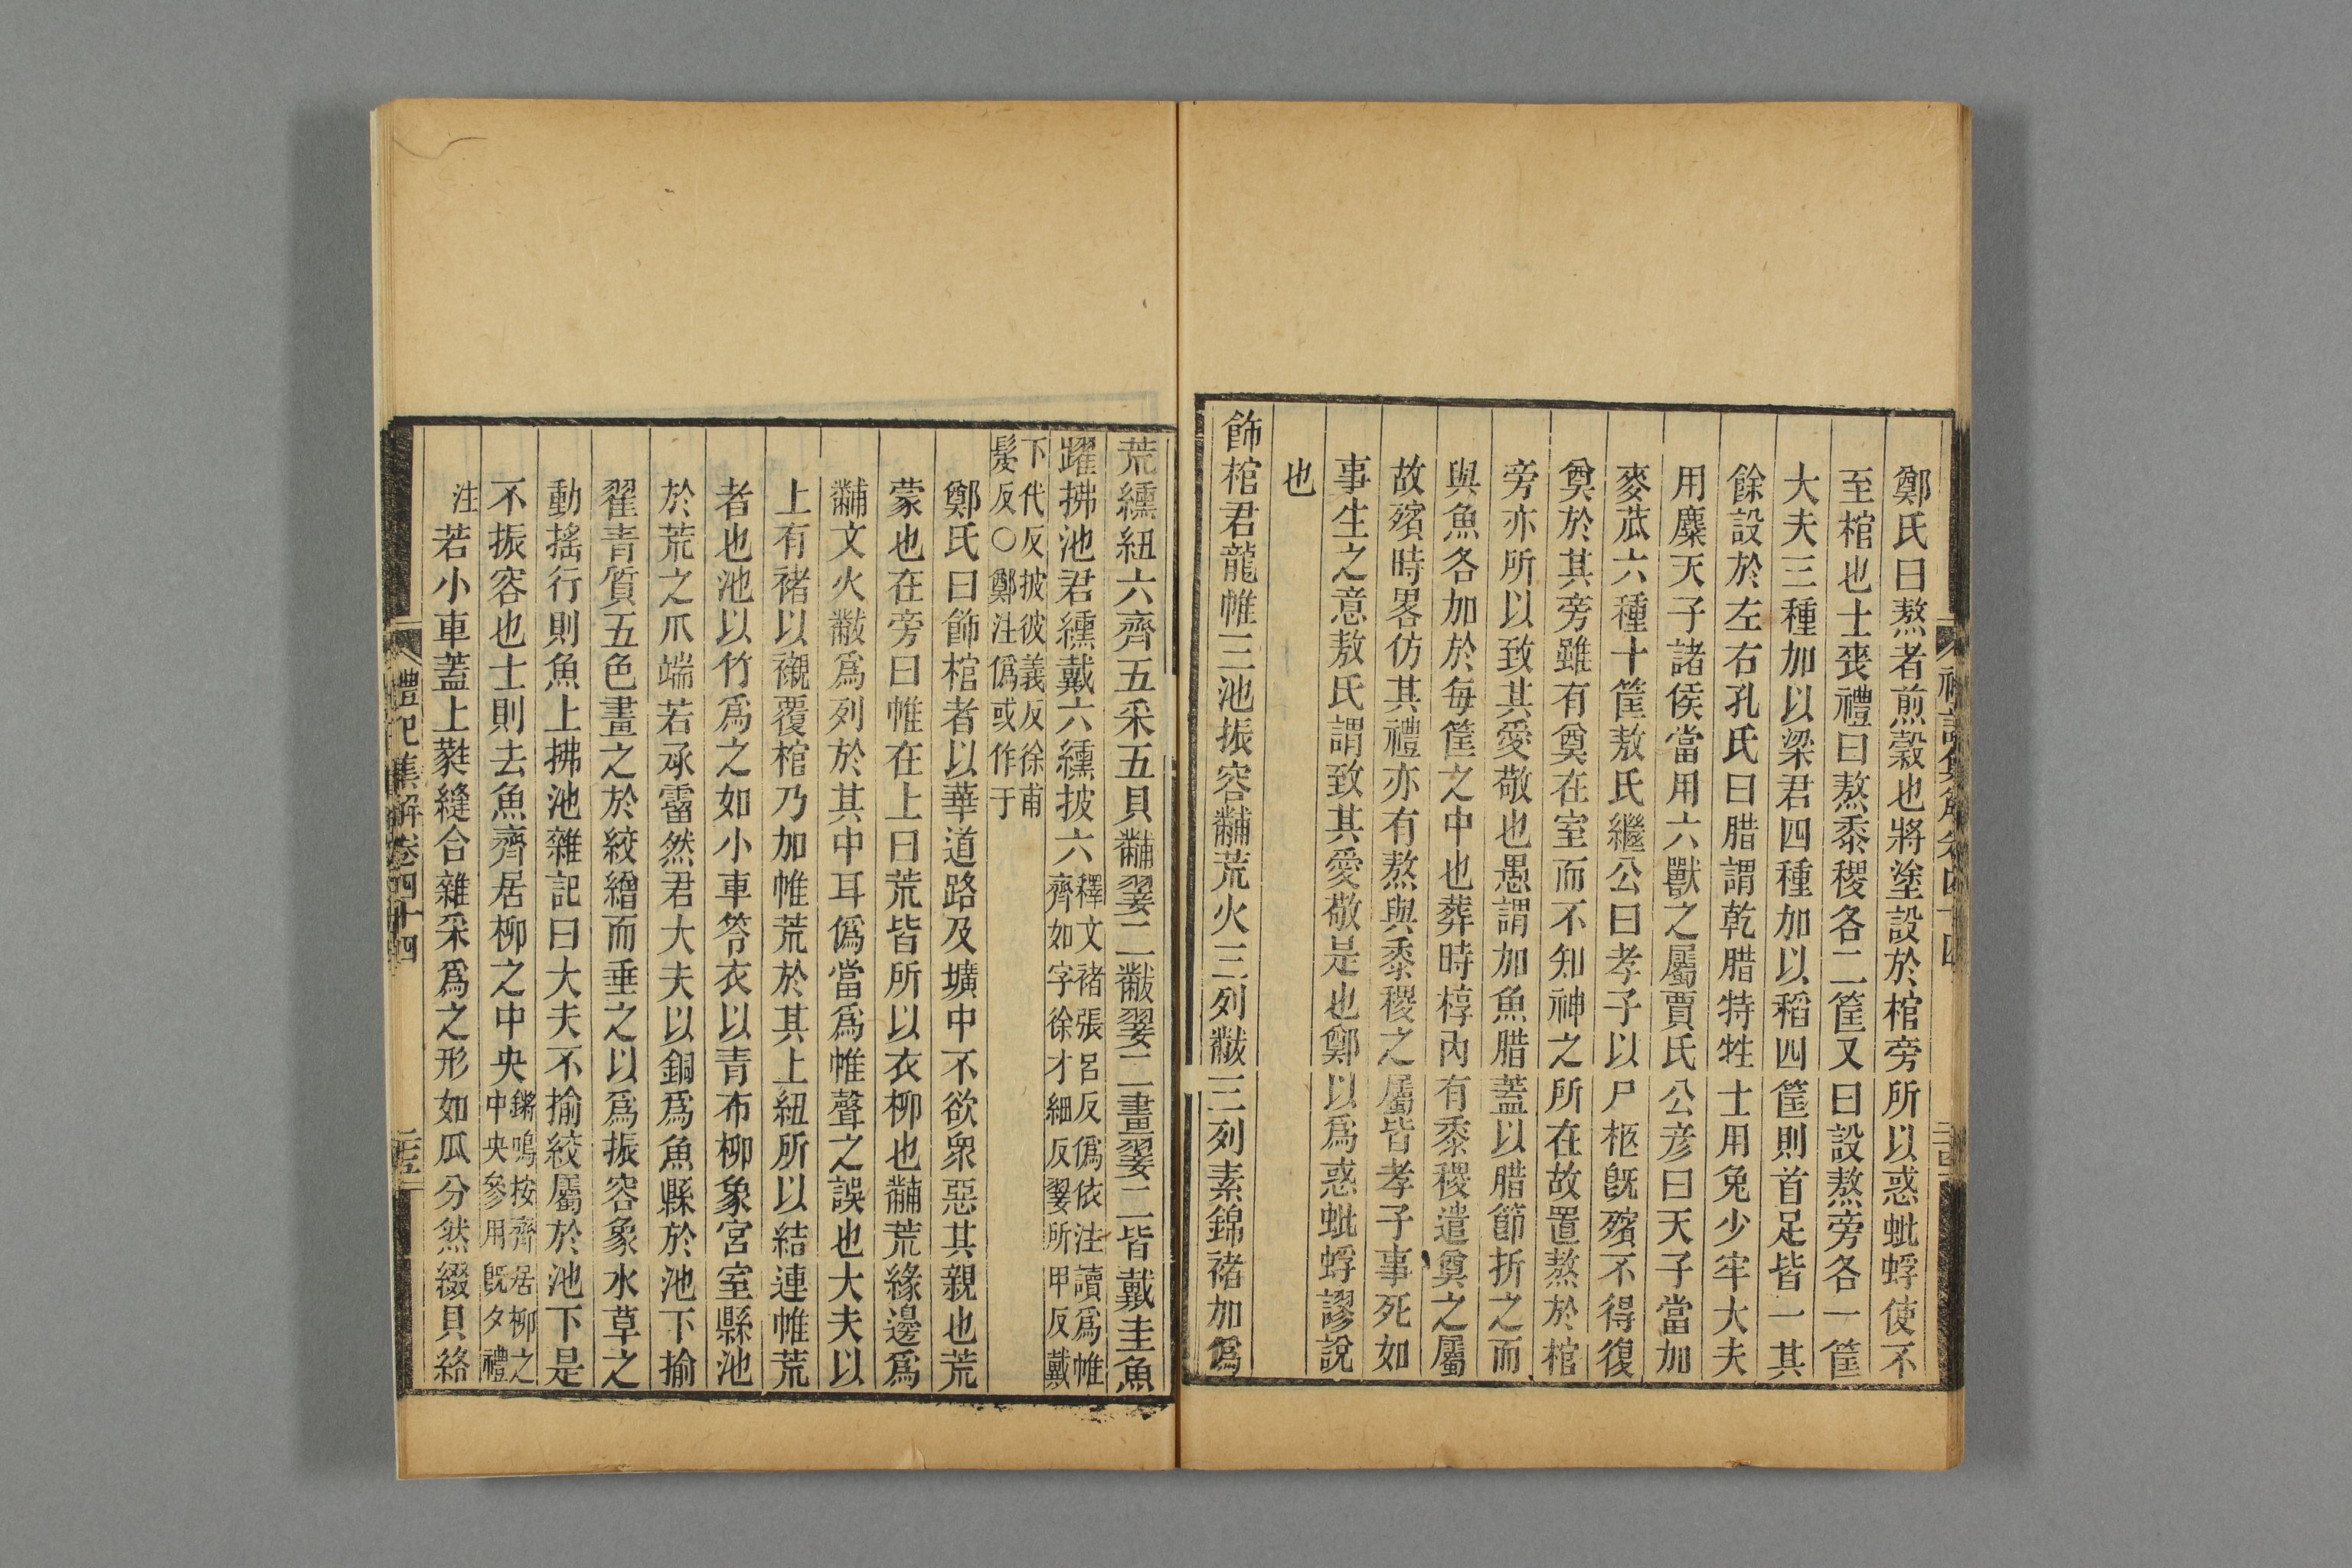 鄭氏曰熬者煎穀也將塗設於棺旁所以惑蚍蜉使不
至棺也士喪禮曰熬黍稷各二筐又曰設熬旁各一筐
大夫三種加以粱君四種加以稻四筐則首足皆一其
餘設於左右孔氏曰腊謂乾腊特牲士用兔少牢大夫
用麋天子諸侯當用六獸之屬賈氏公彦曰天子當加
麥苽六種十筐敖氏繼公曰孝子以尸柩旣殯不得復
奠於其旁雖有奠在室而不知神之所在故置熬於棺
旁亦所以致其愛敬也愚謂加魚腊蓋以腊節折之而
與魚各加於每筐之中也葬時椁內有黍稷遣奠之屬
故殯時畧仿其禮亦有熬與黍稷之屬皆孝子事死如
事生之意敖氏謂致其愛敬是也鄭以爲惑蚍蜉謬說
也
飾棺君龍帷三池振容黼荒火三列黻三列素錦褚加僞
荒纁紐六齊五采五貝黼翣二黻翣二畫翣二皆戴圭魚
躍拂池君纁戴六纁披六釋文褚張呂反僞依注讀爲帷
齊如字徐才細反翣所甲反戴
下代反披彼義反徐甫
髮反○鄭注僞或作于
鄭氏曰飾棺者以華道路及壙中不欲衆惡其親也荒
蒙也在旁曰帷在上曰荒皆所以衣柳也黼荒緣邊爲
黼文火黻爲列於其中耳僞當爲帷聲之誤也大夫以
上有褚以襯覆棺乃加帷荒於其上紐所以結連帷荒
者也池以竹爲之如小車笭衣以青布柳象宮室縣池
於荒之爪端若承霤然君大夫以銅爲魚縣於池下揄
翟青質五色畫之於絞繒而垂之以爲振容象水草之
動搖行則魚上拂池雜記曰大夫不揄絞屬於池下是
不振容也士則去魚齊居柳之中央鏘鳴按齊居柳之
中央參用旣夕禮
注若小車蓋上蕤縫合雜采爲之形如瓜分然綴貝絡
禮記集解卷四十四
二十五